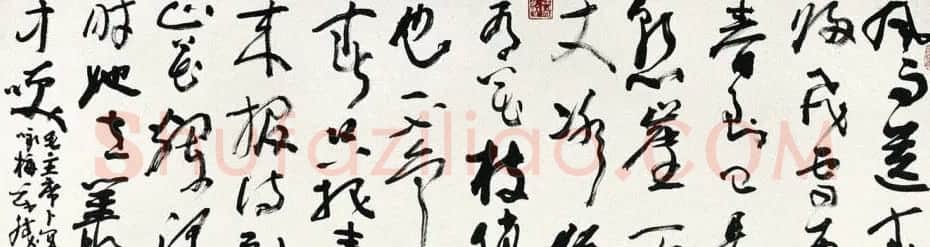 风雨送
归飛雪
春到已是
悬崖百
丈冰猶
有花枝俏
也不争
春只把春
来报待到
山花爛漫
时她在叢
中咲
毛主席卜算
咏梅
Shufaziliao.com